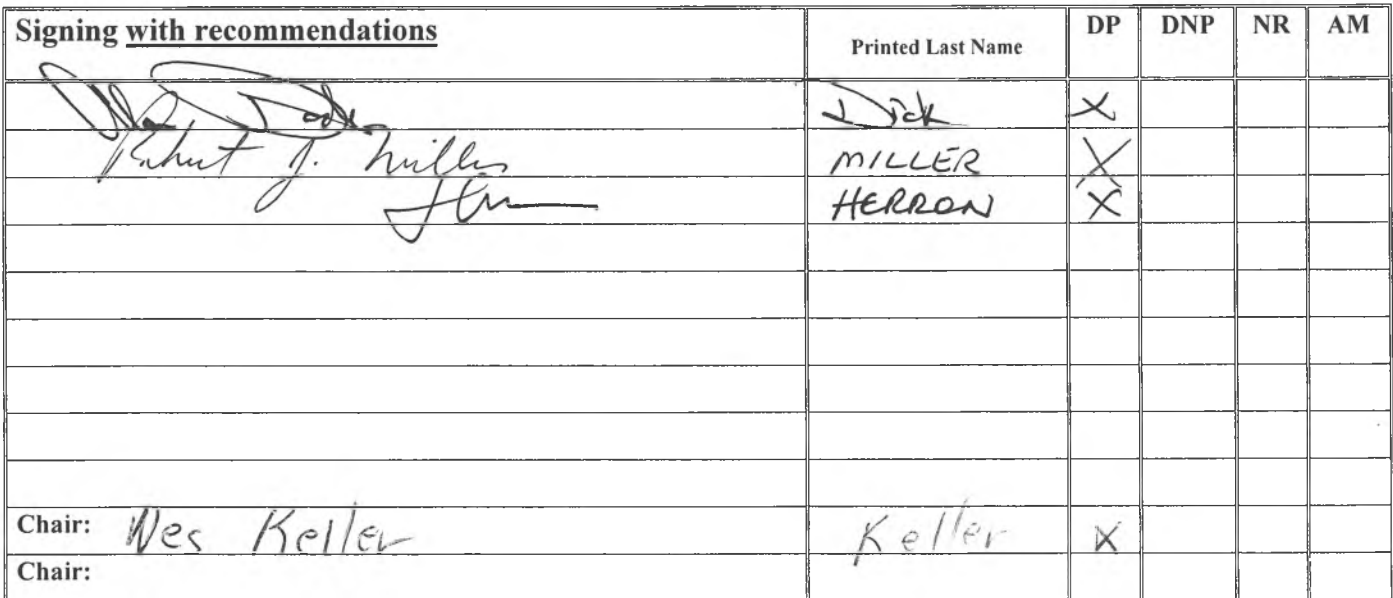 Signing with recommendations Printed Last Name DP DNP NR AM
Dick X
Robert J. Miller MILLER X
HERRON X
Chair: Wes Keller Keller X
Chair: